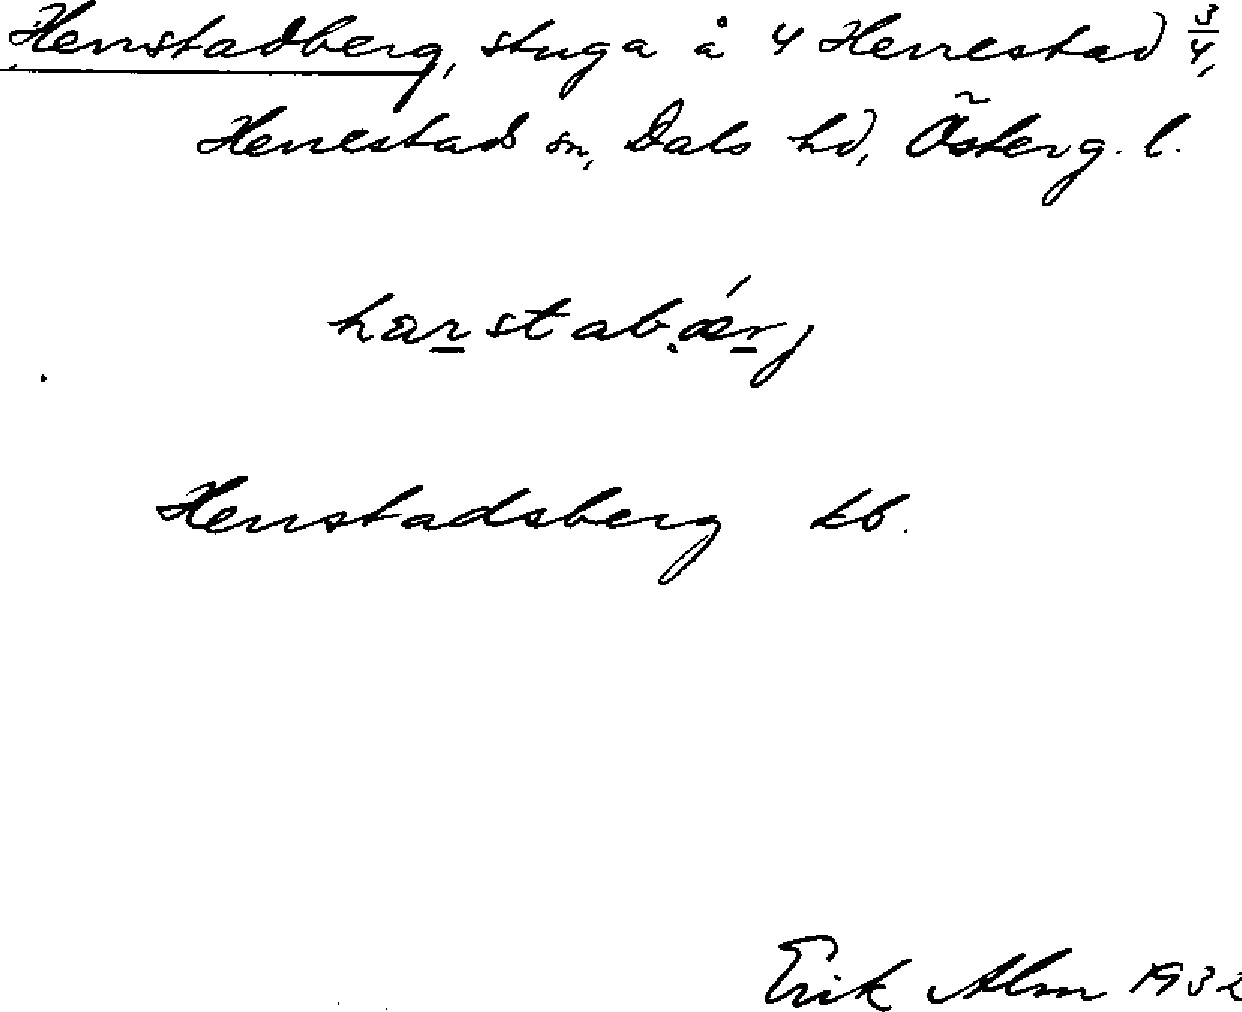 Herrstadberg, stuga å 4 Herrestad 3/4,
Herrestad sn, Dals hd, Österg. l.
harstabærj
Herrstadsberg kb.
Erik Alm 1932